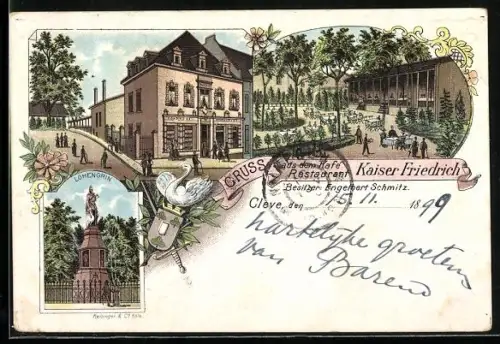 GRUSS aus dem Kafé
Restaurant Kaiser Friedrich
Besitzer: Engelbert Schmitz.
Cleve, den 15. 11. 1899
LOHENGRIN
hartelijke groeten
van Barend